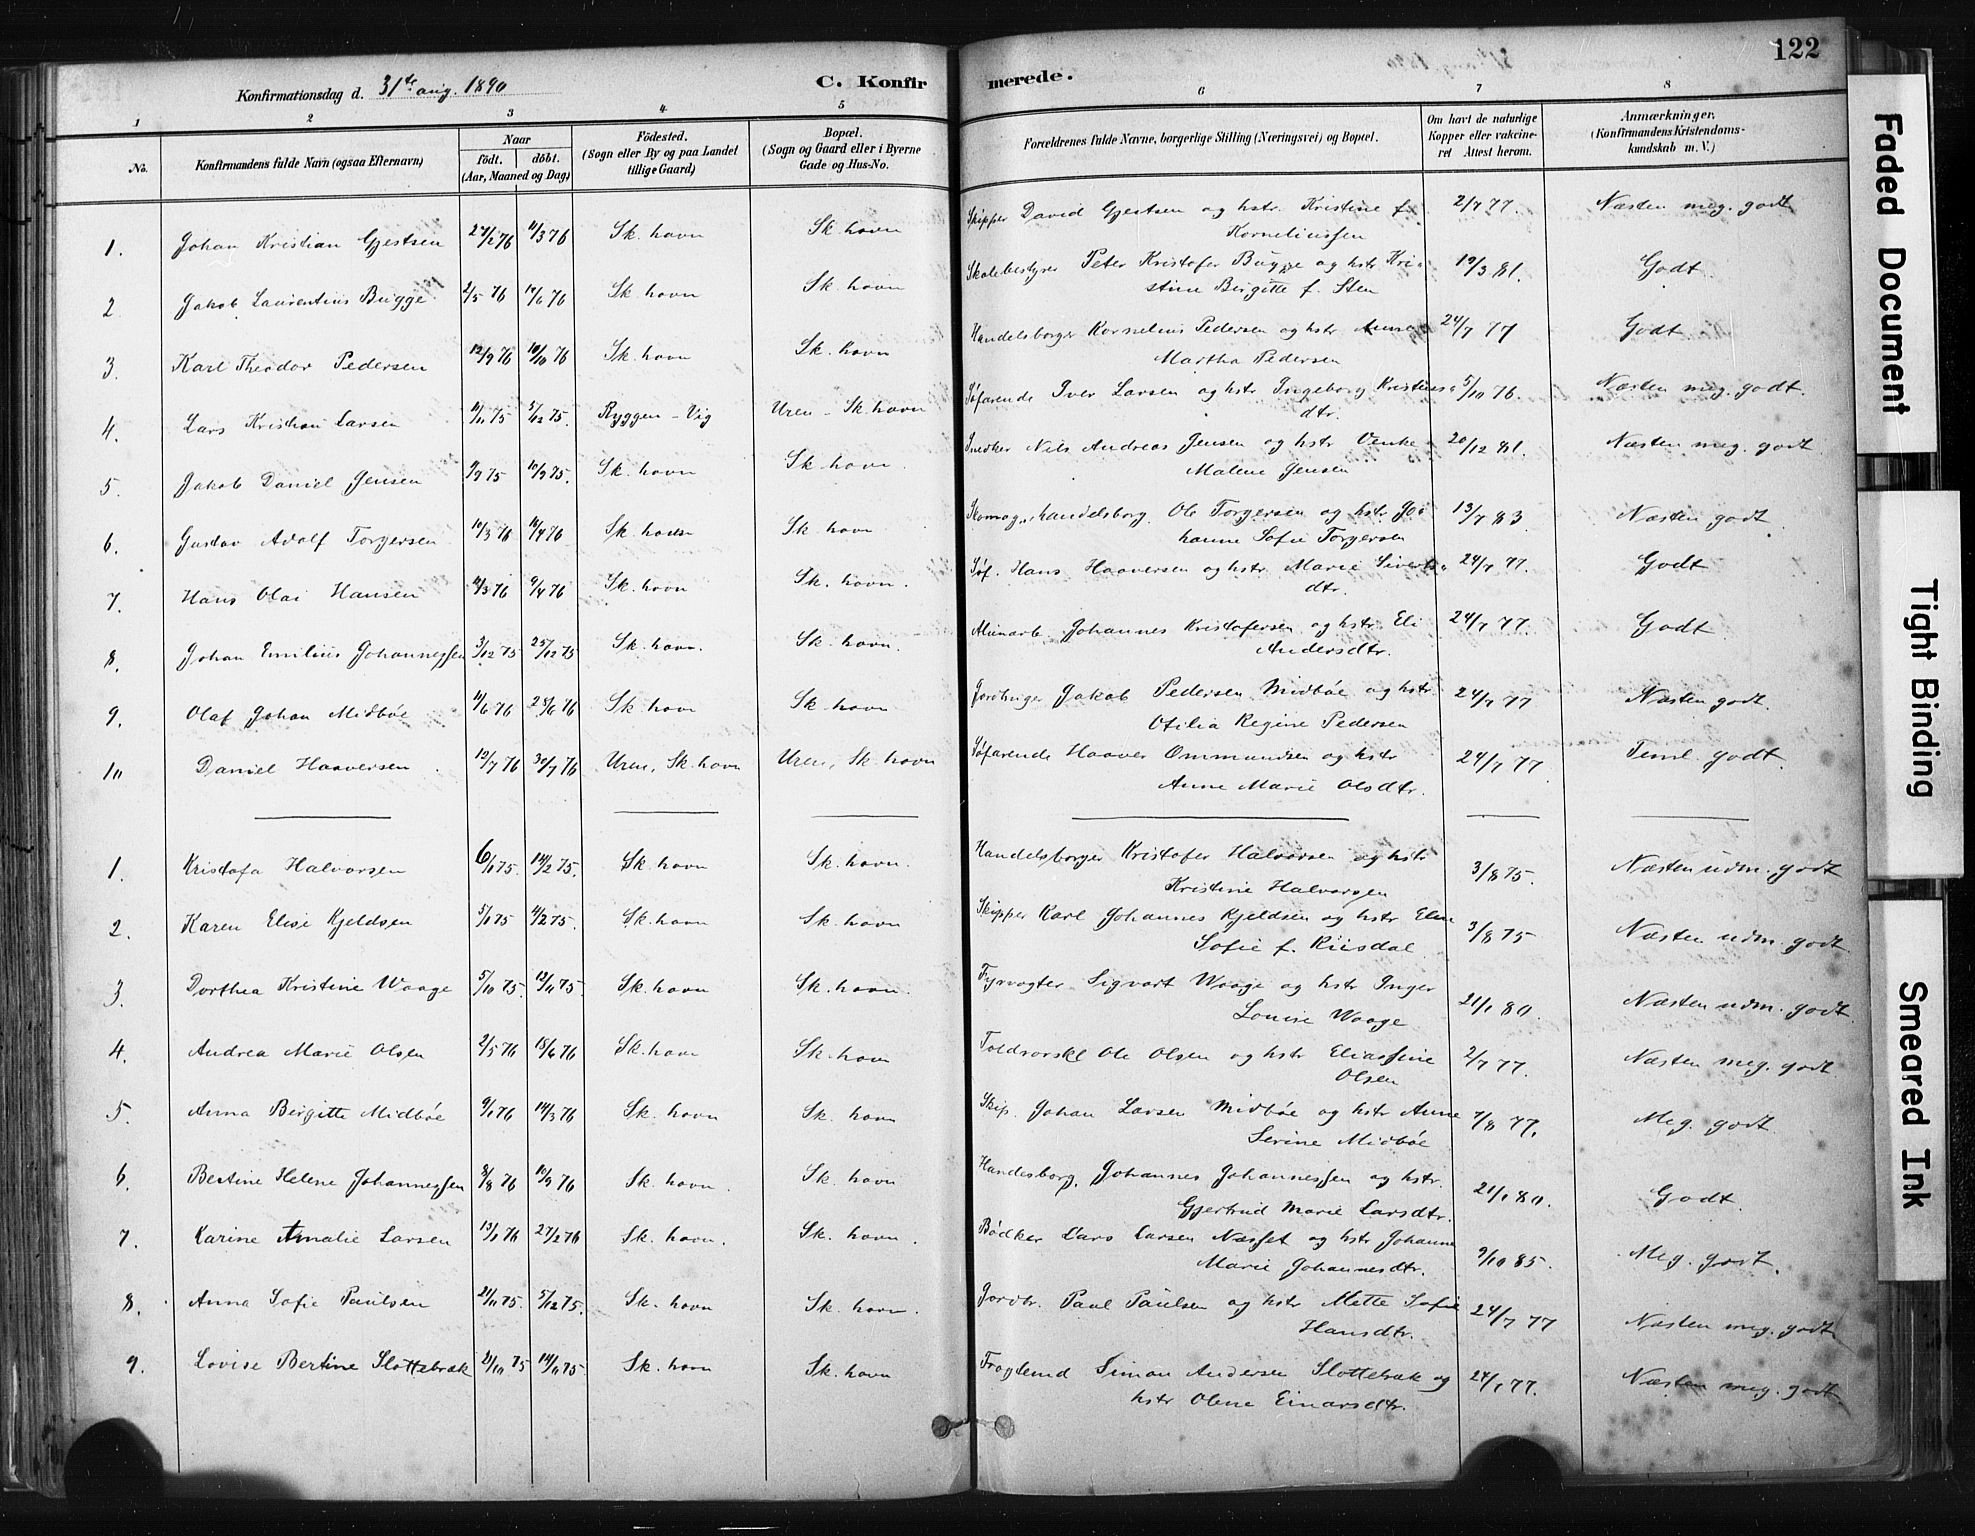 122
Konfirmationsdag d. 31te aug. 1890
C. Konfirmerede.
1 2 3 4 5 6 7 8
No.
Konfirmandens fulde Navn (ogsaa Efternavn)
Naar
födt. döbt.
(Aar, Maaned og Dag)
Födested.
(Sogn eller By og paa Landet
tillige Gaard)
Bopæl.
(Sogn og Gaard eller i Byerne
Gade og Hus-No.
Forældrenes fulde Navne, borgerlige Stilling (Næringsvei) og Bopæl.
Om havt de naturlige
Kopper eller vakcine-
ret Attest herom.
Anmærkninger.
(Konfirmandens Kristendoms-
kundskab m. V.)
1. Johan Kristian Gjestsen 27/2 76 11/3 76 Sk. havn Sk. havn Skipper David Gjestsen og hstr. Kristine f. 2/7 77. Næsten meg. godt
Korneliussen
2. Jakob Laurentius Bugge 2/5 76 11/6 76 Sk. havn Sk. havn Skolebestyrer Peter Kristofer Bugge og hstr Kri- 19/3 81. Godt
stine Birgitte f. Sten
3. Karl Theodor Pedersen 12/9 76 10/10 76 Sk. havn Sk. havn Handelsborger Kornelius Pedersen og hstr Anna 24/7 77 Godt
Martha Pedersen
4. Lars Kristian Larsen 11/11 75 5/12 75. Ryggen - Vig Uren - Sk. havn Søfarende Iver Larsen og hstr Ingeborg Kristens- 5/10 76. Næsten meg. godt.
dtr.
5. Jakob Daniel Jensen 9/9 75 19/9 75. Sk. havn Sk. havn. Snedker Nils Andreas Jensen og hstr Venke 20/12 81. Næsten meg. godt
Malene Jensen
6. Gustav Adolf Torgersen 10/3 76 16/4 76 Sk. havn Sk. havn Skomag. Handelsborg. Ole Torgersen og hstr. Jo- 13/7 83 Næsten godt
hanne Sofie Torgersen
7. Hans Olai Hansen 11/3 76 9/4 76 Sk. havn Sk. havn. Søf. Hans Haaversen og hstr Marie Siverts- 24/7 77. Godt
dtr.
8. Johan Emilius Johannessen 3/12 75 25/12 75 Sk. havn. Sk. havn. Minarb. Johannes Kristofersen og hstr Eli 24/7 77. Godt
Andersdtr.
9. Olaf Johan Midbøe 11/6 76 25/6 76 Sk. havn Sk. havn Jordbruger Jakob Pedersen Midbøe og hstr 24/7 77 Næsten godt.
Otilia Regine Pedersen
10 Daniel Haaversen 12/7 76 30/7 76 Uren, Sk. havn Uren, Sk. havn Søfarende Haaver Ommundsen og hstr 24/7 77. Teml. godt
Anne Marie Olsdtr.
1. Kristofa Halvorsen 6/1 75. 14/2 75. Sk. havn Sk. havn. Handelsborger Kristofer Halvorsen og hstr 3/8 75. Næsten udm. godt
Kristine Halvorsen
2. Karen Elise Kjeldsen 5/1 75 11/2 75. Sk. havn Sk. havn Skipper Karl Johannes Kjeldsen og hstr Elen 3/8 75 Næsten udm. godt
Sofie f. Riisdal
3. Dorthea Kristine Waage 5/10 75. 12/11 75. Sk. havn Sk. havn. Fyrvogter Sigvart Waage og hstr Inger 21/1 80. Næsten udm. godt.
Louise Waage
4. Andrea Marie Olsen 2/5 76 18/6 76 Sk. havn Sk. havn Toldrorskl Ole Olsen og hstr Eliassine 2/7 77. Næsten meg. godt
Olsen
5. Anna Birgitte Midbøe 9/1 76 14/3 76 Sk. havn Sk. havn Skip. Johan Larsen Midbøe og hstr Anne 7/8 77. Meg. godt
Serine Midbøe
6. Bertine Helene Johannessen 8/8 76 10/9 76 Sk. havn. Sk. havn Handesborg. Johannes Johannessen og hstr. 21/1 80. Godt.
Gjertrud Marie Larsdtr.
7. Karine Amalie Larsen 13/1 76 27/2 76 Sk. havn. Sk. havn. Bødker Lars Larsen Næsset og hstr Johanne 9/10 85. Meg. godt.
Marie Johannesdtr.
8. Anna Sofie Paulsen 21/11 75. 5/12 75. Sk. havn Sk. havn. Jordbr. Paul Paulsen og hstr Mette Sofie 24/7 77 Næsten meg. godt
Hansdtr.
9. Lovise Bertine Slottebræk 21/10 75 14/11 75 Sk. havn Sk. havn Simon Andersen Slottebræk og 24/7 77. Næsten meg. godt
hstr Olene Einarsdtr.
Faded Document
Tight Binding
Smeared Ink